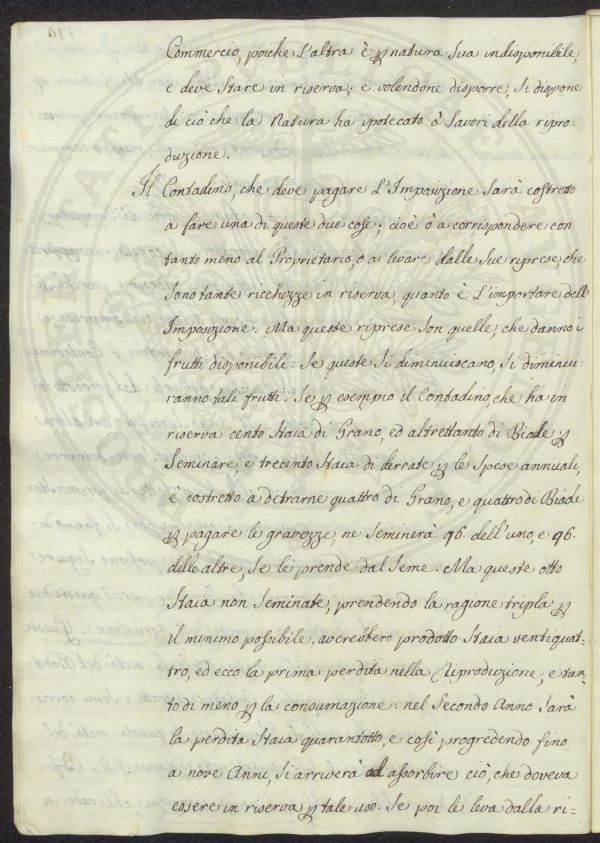 Commercio, poiche l'altra è ꝑ natura sua indisponibile,
e deve stare in riserva; e volendone disporre, si dispone
di ciò che la Natura ha ipotecato à lavori della ripro-
duzione.
Il Contadino, che deve pagare l'Imposizione sarà costretto
a fare una di queste due cose; cioè ò a corrispondere con
tanto meno al Proprietario, o a levare dalle sue riprese, che
sono tante ricchezze in riserva, quanto è l'importare dell'
Imposizione. Ma queste riprese son quelle, che danno i
frutti disponibili: se queste si diminuiscano, si diminui-
ranno tali frutti. Se ꝑ esempio il Contadino, che ha in
riserva cento staia di Grano, ed altrettanto di Biade ꝑ
seminare, e trecento staia di derrate ꝑ le spese annuali,
è costretto a detrarne quattro di Grano, e quattro di Biade
ꝑ pagare le gravezze, ne seminerà 96. dell'uno, e 96.
delle altre, se le prende dal seme. Ma queste otto
staia non seminate, prendendo la ragione tripla ꝑ
il minimo possibile, averebbero prodotto staia ventiquat-
tro, ed ecco la prima perdita nella Riproduzione, e tan-
to di meno ꝑ la consumazione: nel secondo Anno sarà
la perdita staia quarantotto, e così progredendo fino
a nove Anni, si arriverà ad assorbire ciò, che doveva
essere in riserva ꝑ tale uso. Se poi le leva dalla ri-